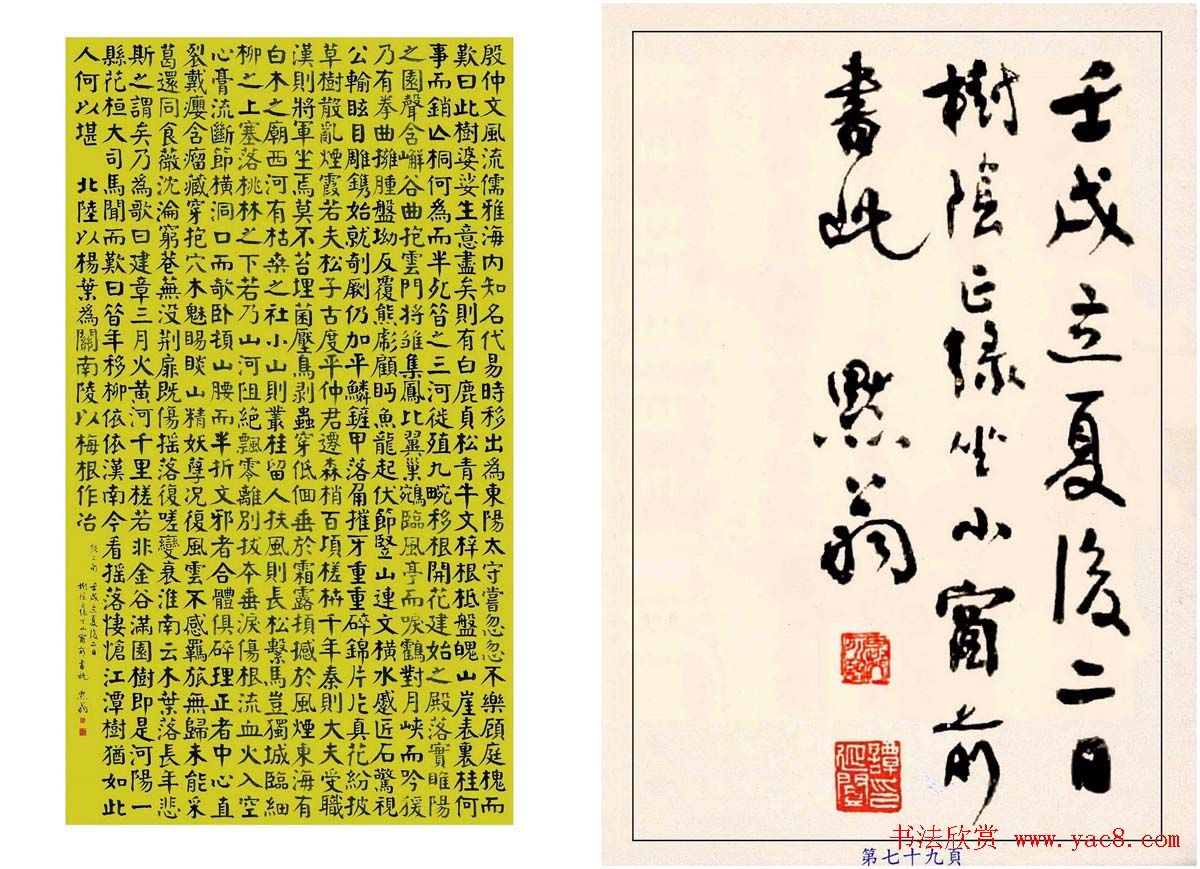 殷仲文風流儒雅海內知名代易時移出為東陽太守嘗忽忽不樂顧庭槐而
歎曰此樹婆娑生意盡矣則有白鹿貞松青牛文梓根柢盤魄山崖表裏桂何
事而銷亾桐何為而半死昔之三河徙殖九畹移根開花建始之殿落實睢陽
之園聲含嶰谷曲抱雲門將雛集鳳比翼巢鵷臨風亭而唳鶴對月峽而吟猨
乃有拳曲擁腫盤坳反覆熊彪顧眄魚龍起伏節豎山連文橫水蹙匠石驚視
公輸眩目雕鐫始就剞劂仍加平鱗鏟甲落角摧牙重重碎錦片片真花紛披
草樹散亂煙霞若夫松子古度平仲君遷森梢百頃槎枿千年秦則大夫受職
漢則將軍坐焉莫不苔埋菌壓鳥剝蟲穿低佪垂於霜露頓撼於風煙東海有
白木之廟西河有枯桑之社小山則叢桂留人扶風則長松繫馬豈獨城臨細
柳之上塞落桃林之下若乃山河阻絕飄零離別拔本垂淚傷根流血火入空
心膏流斷節橫洞口而欹卧頓山腰而半折文邪者合體俱碎理正者中心直
裂戴癭含瘤藏穿抱穴木魅睗睒山精妖孽況復風雲不感羈旅無歸未能采
葛還同食薇沈淪窮巷蕪沒荊扉既傷搖落復嗟變衰淮南云木葉落長年悲
斯之謂矣乃為歌曰建章三月火黃河千里槎若非金谷滿園樹即是河陽一
縣花桓大司馬聞而歎曰昔年移柳依依漢南今看搖落悽愴江潭樹猶如此
人何以堪 北陸以楊葉為關南陵以梅根作冶
壬戌立夏後二日
樹陰正綠坐小窗前
書此 默翁
壬戌立夏後二日
樹陰正綠坐小窗前
書此 默翁
譚印
延闓
书法欣赏 www.yac8.com
第七十九頁